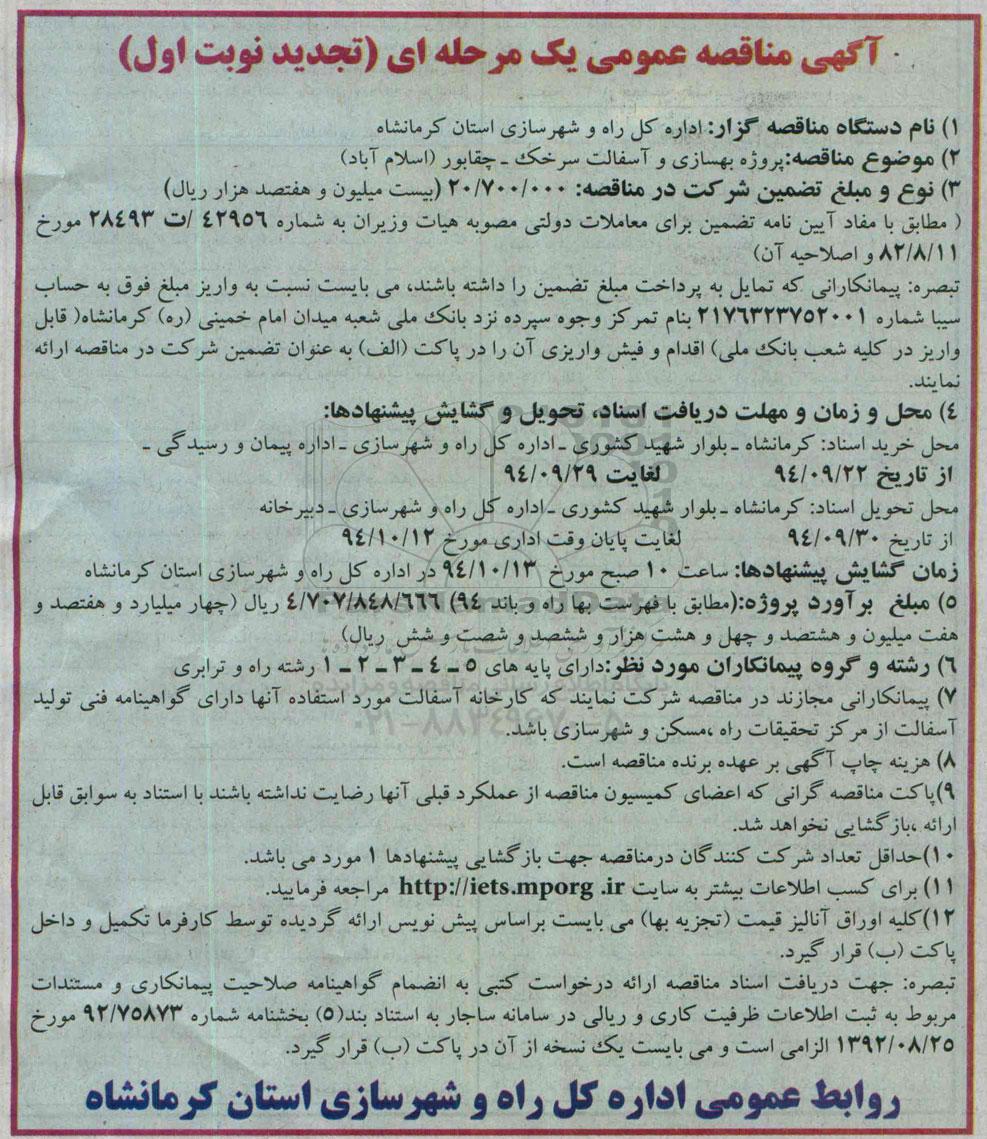 آگهی مناقصه عمومی یک مرحله ای (تجدید نوبت اول)
۱) نام دستگاه مناقصه گزار: اداره کل راه و شهرسازی استان کرمانشاه
۲) موضوع مناقصه:پروژه بهسازی و آسفالت سرخک ـ چقابور (اسلام آباد)
۳) نوع و مبلغ تضمین شرکت در مناقصه: ۲۰/۷۰۰/۰۰۰ (بیست میلیون و هفتصد هزار ریال)
( مطابق با مفاد آیین نامه تضمین برای معاملات دولتی مصوبه هیات وزیران به شماره ٤۲۹۵٦ /ت ۲۸٤۹۳ مورخ
۸۲/۸/۱۱ و اصلاحیه آن)
تبصره: پیمانکارانی که تمایل به پرداخت مبلغ تضمین را داشته باشند، می بایست نسبت به واریز مبلغ فوق به حساب
سیبا شماره ۲۱۷٦۳۲۳۷۵۲۰۰۱ بنام تمرکز وجوه سپرده نزد بانک ملی شعبه میدان امام خمینی (ره) کرمانشاه( قابل
واریز در کلیه شعب بانک ملی) اقدام و فیش واریزی آن را در پاکت (الف) به عنوان تضمین شرکت در مناقصه ارائه
نمایند.
٤) محل و زمان و مهلت دریافت اسناد، تحویل و گشایش پیشنهادها:
محل خرید اسناد: کرمانشاه ـ بلوار شهید کشوری ـ اداره کل راه و شهرسازی ـ اداره پیمان و رسیدگی ـ
از تاریخ ۹٤/۰۹/۲۲ لغایت ۹٤/۰۹/۲۹
محل تحویل اسناد: کرمانشاه ـ بلوار شهید کشوری ـ اداره کل راه و شهرسازی ـ دبیرخانه
از تاریخ ۹٤/۰۹/۳۰ لغایت پایان وقت اداری مورخ ۹٤/۱۰/۱۲
زمان گشایش پیشنهادها: ساعت ۱۰ صبح مورخ ۹٤/۱۰/۱۳ در اداره کل راه و شهرسازی استان کرمانشاه
۵) مبلغ برآورد پروژه:(مطابق با فهرست بها راه و باند ۹٤) ٤/۷۰۷/۸٤۸/٦٦٦ ریال (چهار میلیارد و هفتصد و
هفت میلیون و هشتصد و چهل و هشت هزار و ششصد و شصت و شش ریال)
٦) رشته و گروه پیمانکاران مورد نظر:دارای پایه های ۵ ـ ٤ ـ ۳ ـ ۲ ـ ۱ رشته راه و ترابری
۷) پیمانکارانی مجازند در مناقصه شرکت نمایند که کارخانه آسفالت مورد استفاده آنها دارای گواهینامه فنی تولید
آسفالت از مرکز تحقیقات راه ،مسکن و شهرسازی باشد.
۸) هزینه چاپ آگهی بر عهده برنده مناقصه است.
۹)پاکت مناقصه گرانی که اعضای کمیسیون مناقصه از عملکرد قبلی آنها رضایت نداشته باشند با استناد به سوابق قابل
ارائه ،بازگشایی نخواهد شد.
۱۰)حداقل تعداد شرکت کنندگان درمناقصه جهت بازگشایی پیشنهادها ۱ مورد می باشد.
۱۱) برای کسب اطلاعات بیشتر به سایت http://iets.mporg .ir مراجعه فرمایید.
۱۲)کلیه اوراق آنالیز قیمت (تجزیه بها) می بایست براساس پیش نویس ارائه گردیده توسط کارفرما تکمیل و داخل
پاکت (ب) قرار گیرد.
تبصره: جهت دریافت اسناد مناقصه ارائه درخواست کتبی به انضمام گواهینامه صلاحیت پیمانکاری و مستندات
مربوط به ثبت اطلاعات ظرفیت کاری و ریالی در سامانه ساجار به استناد بند(۵) بخشنامه شماره ۹۲/۷۵۸۷۳ مورخ
۱۳۹۲/۰۸/۲۵ الزامی است و می بایست یک نسخه از آن در پاکت (ب) قرار گیرد.
روابط عمومی اداره کل راه و شهرسازی استان کرمانشاه